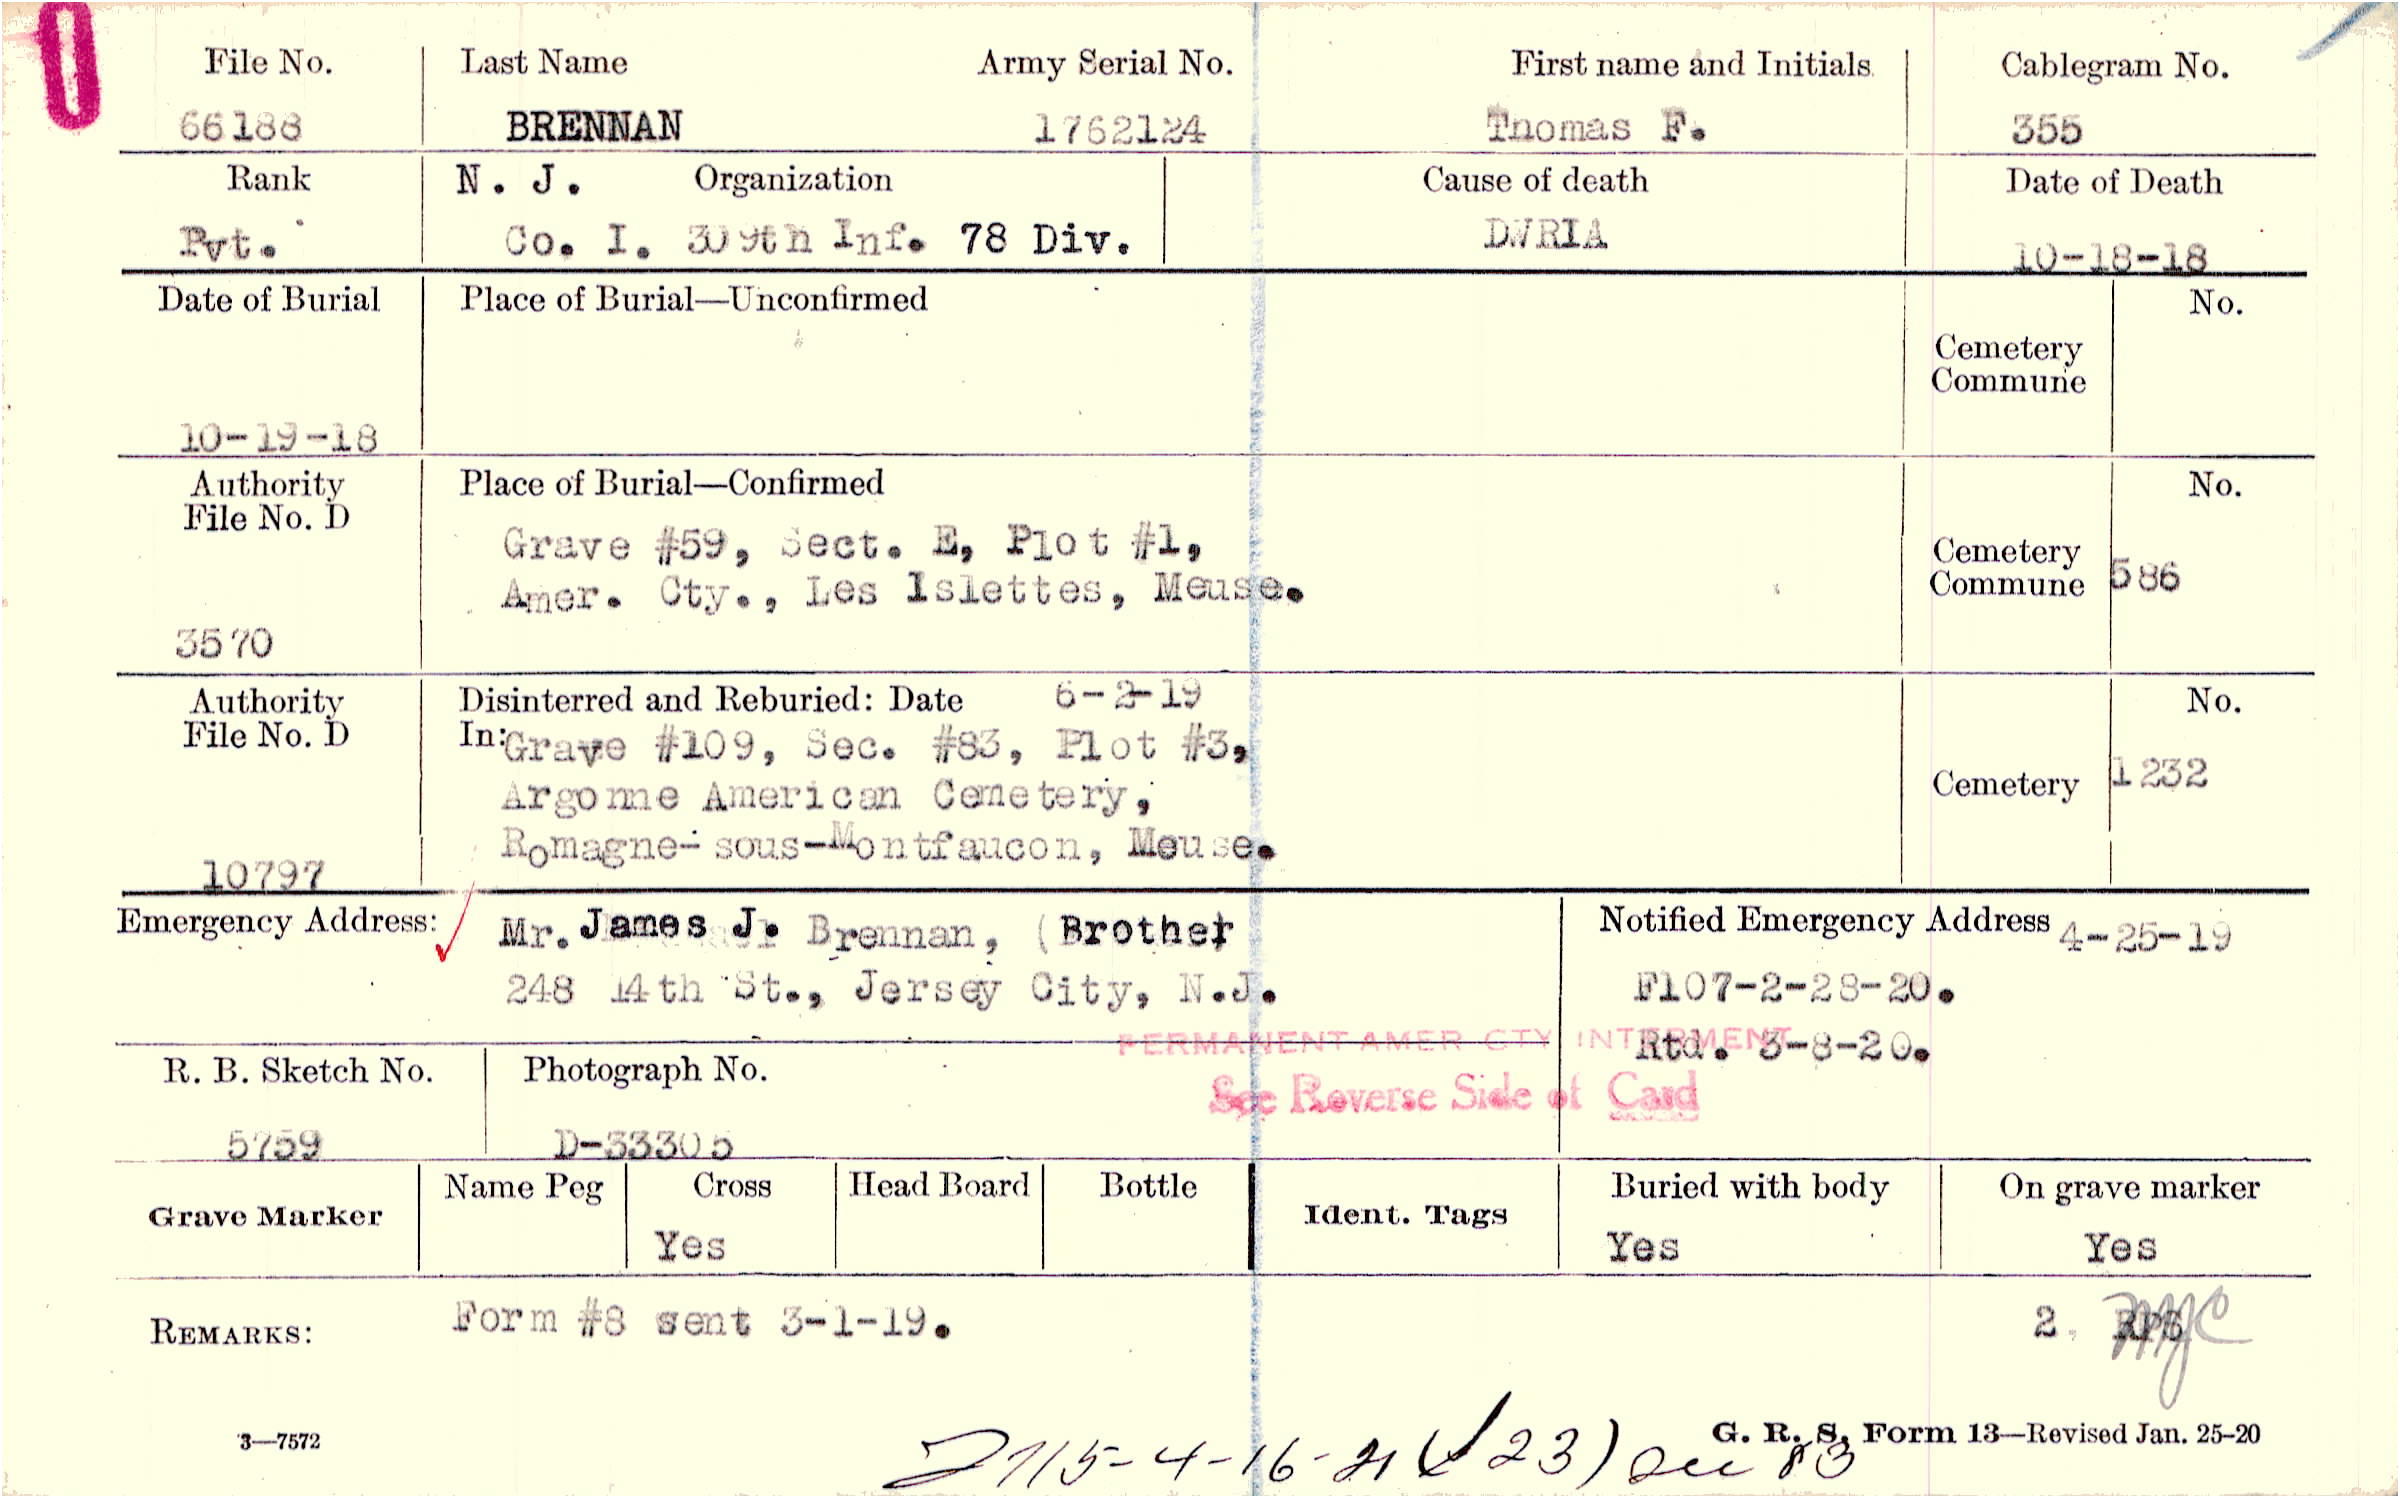 File No. Last Name Army Serial No. First name and Initials Cablegram No.
66188 BRENNAN 1762124 Thomas F. 355
Rank N. J. Organization Cause of death Date of Death
Pvt. Co. I. 309th Inf. 78 Div. DWRIA 10-18-18
Date of Burial Place of Burial—Unconfirmed No.
Cemetery
Commune
10-19-18
Authority Place of Burial—Confirmed No.
File No. D
Grave #59, Sect. E, Plot #1,
Cemetery
Amer. Cty., Les Islettes, Meuse.
Commune 586
3570
Authority Disinterred and Reburied: Date 6-2-19 No.
File No. D In: Grave #109, Sec. #83, Plot #3,
Argonne American Cemetery, Cemetery 1232
Romagne-sous-Montfaucon, Meuse.
10797
Emergency Address: Mr. James J. Brennan, (Brother Notified Emergency Address 4-25-19
248 14th St., Jersey City, N.J. F107-2-28-20.
PERMANENT AMER CTY INTERMENT Rtd. 3-8-20.
R. B. Sketch No. Photograph No. See Reverse Side of Card
5759 D-33305
Grave Marker Name Peg Cross Head Board Bottle Ident. Tags Buried with body On grave marker
Yes Yes Yes
REMARKS: Form #8 sent 3-1-19. 2. RPS
3—7572 G. R. S. Form 13—Revised Jan. 25-20
115-4-16-21 (23) Sec 83